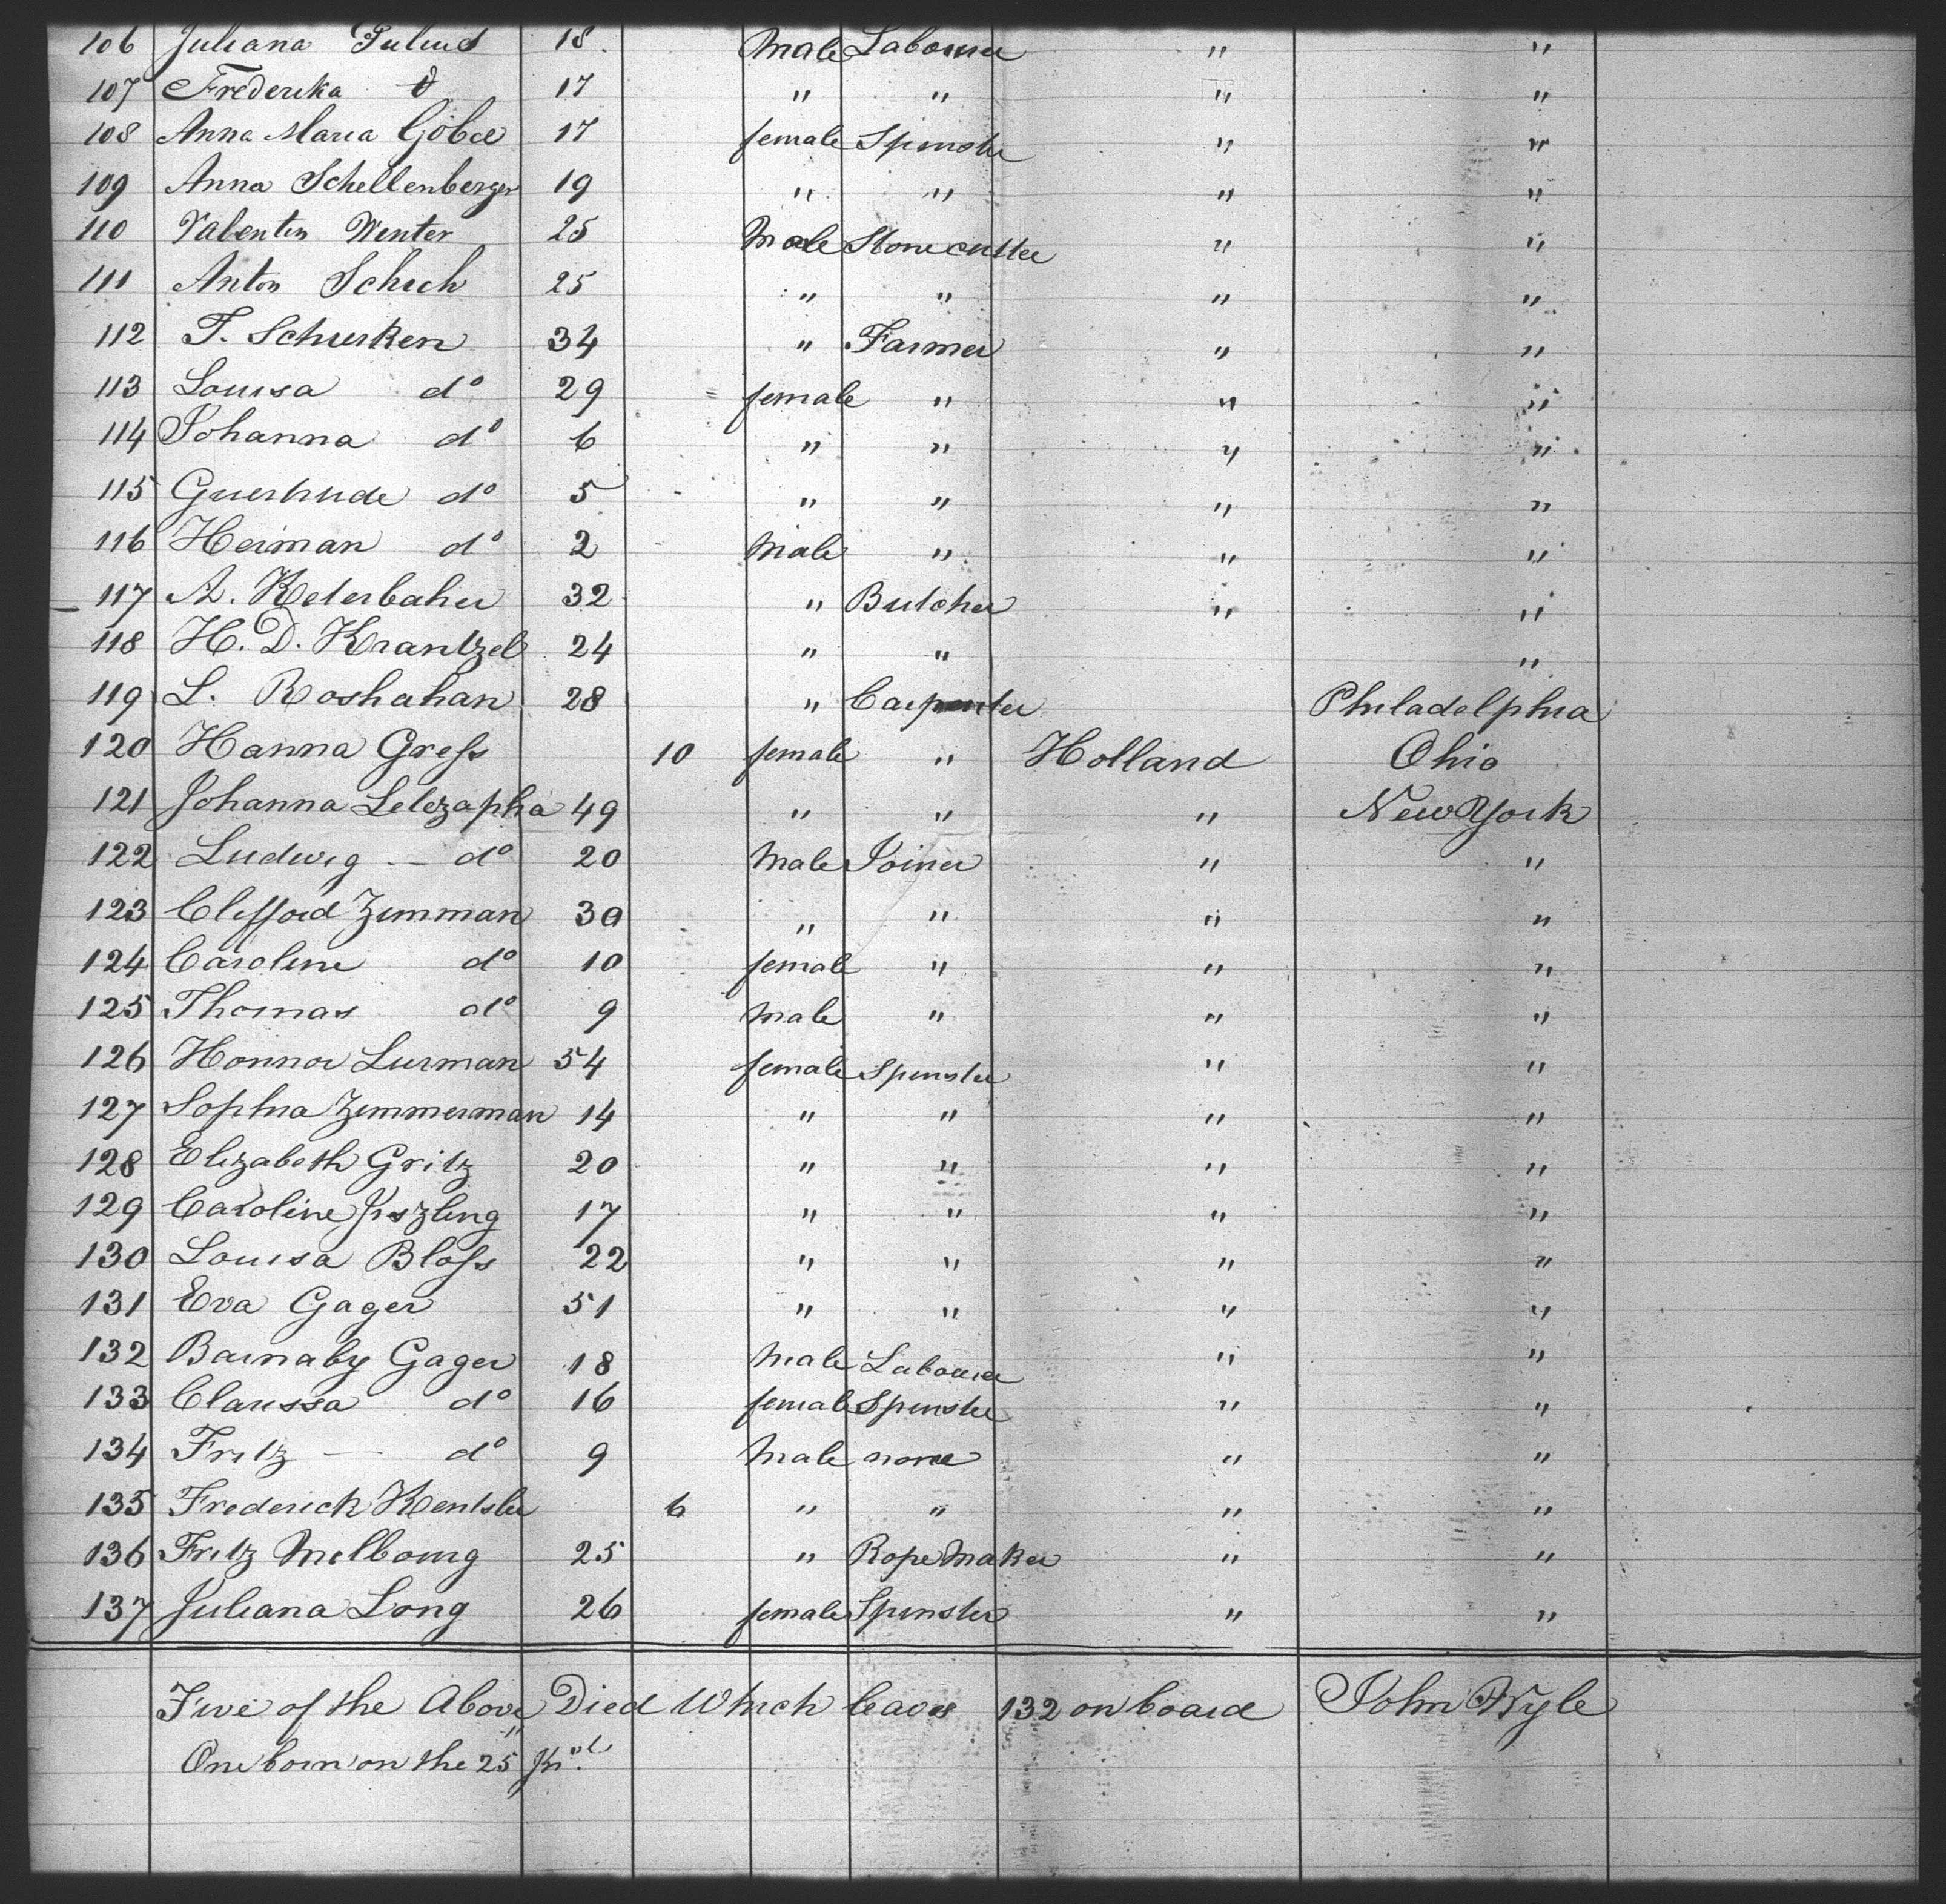 106 Juliana Julius 18. Male Labourer " "
107 Frederika do 17 " " " "
108 Anna Maria Göbel 17 female Spinster " "
109 Anna Schellenberger 19 " " " "
110 Valentin Winter 25 Male Stone cutter " "
111 Anton Schich 25 " " " "
112 T. Schurken 34 " Farmer " "
113 Louisa do 29 female " " "
114 Johanna do 6 " " " "
115 Guertrude do 5 " " " "
116 Heiman do 2 Male " " "
117 A. Keterbaher 32 " Butcher " "
118 H. D. Krantzel 24 " " "
119 L. Roshahan 28 " Carpenter Philadelphia
120 Hanna Gress 10 female " Holland Ohio
121 Johanna Letezapha 49 " " " New York
122 Ludwig — do 20 Male Joiner " "
123 Clifford Zimman 30 " " " "
124 Caroline do 10 female " " "
125 Thomas do 9 Male " " "
126 Honnor Lurman 54 female Spinster " "
127 Sophia Zimmerman 14 " " " "
128 Elizabeth Gritz 20 " " " "
129 Caroline Jiszling 17 " " " "
130 Louisa Bloss 22 " " " "
131 Eva Gager 51 " " " "
132 Barnaby Gager 18 Male Labourer " "
133 Clarissa do 16 female Spinster " "
134 Fritz — do 9 Male none " "
135 Frederick Kentsler 6 " " " "
136 Fritz Melbourg 25 " Rope Maker " "
137 Juliana Long 26 female Spinster " "
Five of the Above Died Which leaves 132 on board John Kyle
One born on the 25 Inst.